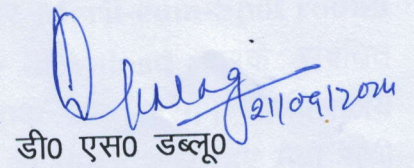 21/09/2024
डी0 एस0 डब्लू0